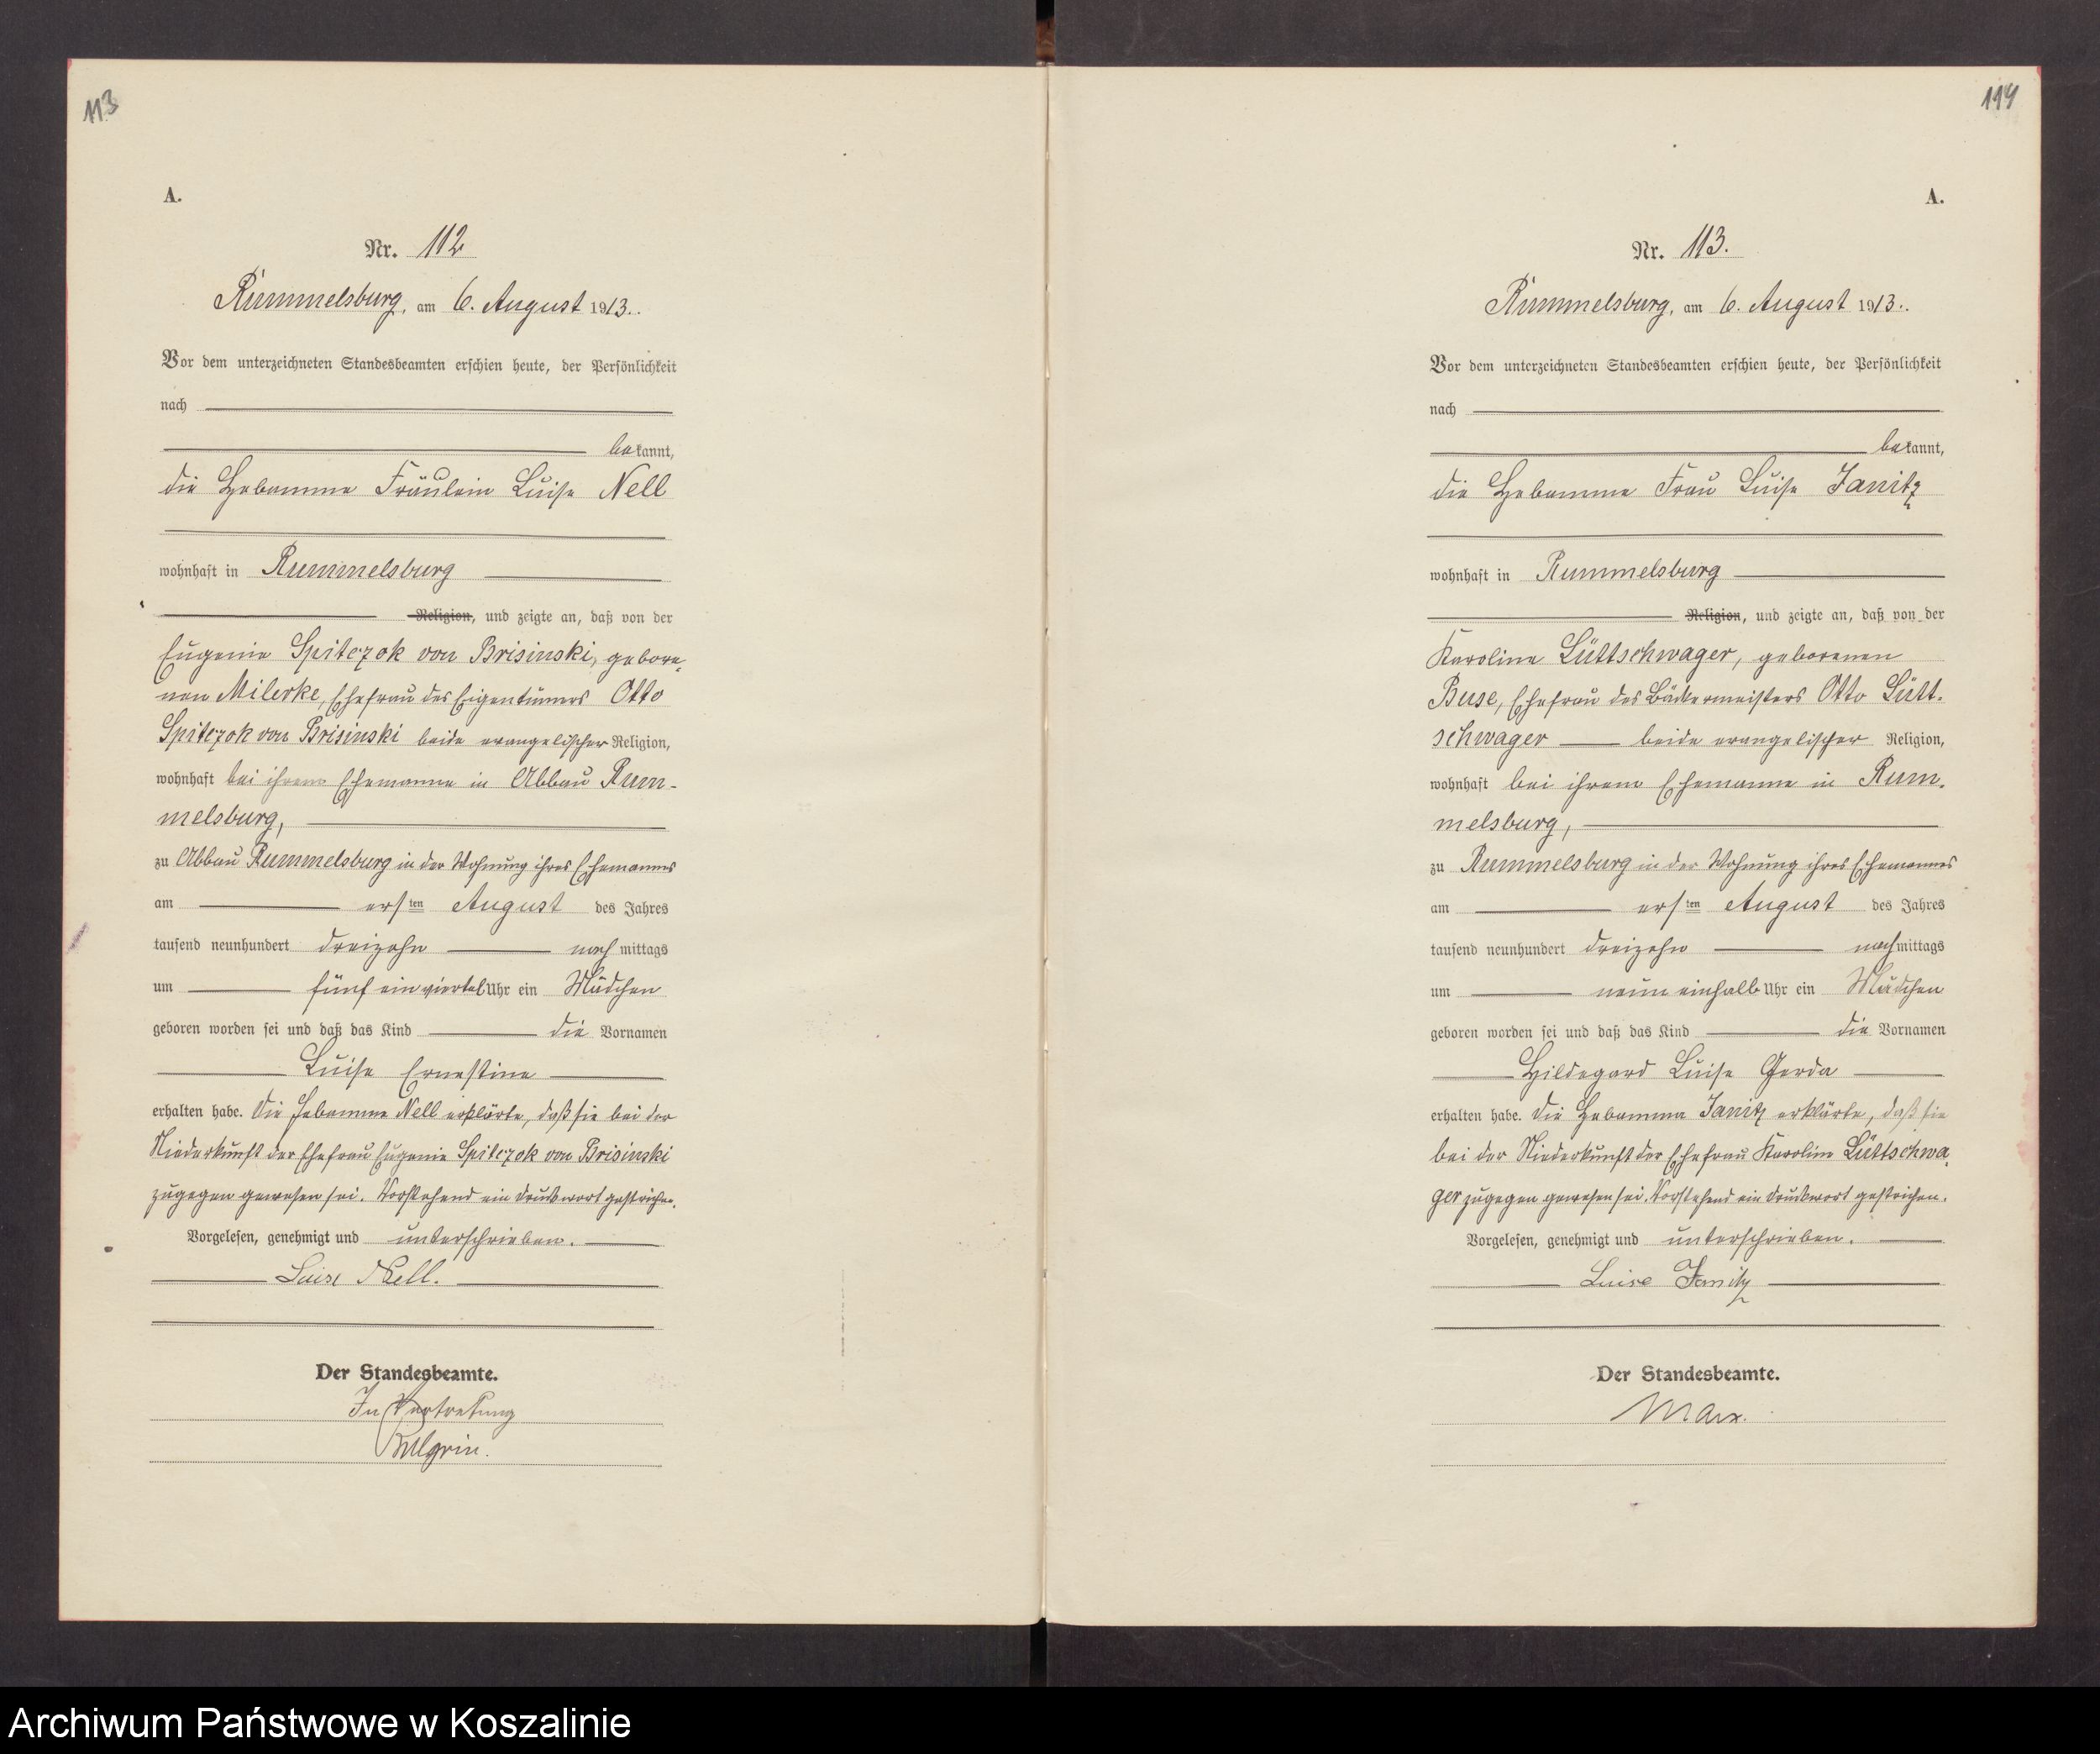 113
A.
Nr. 112
Rummelsburg, am 6. August 1913.
Vor dem unterzeichneten Standesbeamten erschien heute, der Persönlichkeit
nach
bekannt,
die Hebamme Fräulein Luise Nell
wohnhaft in Rummelsburg
Religion, und zeigte an, daß von der
Eugenie Spitczok von Brisinski, gebore-
nen Milerke, Ehefrau des Eigentümers Otto
Spitczok von Brisinski beide evangelischer Religion,
wohnhaft bei ihrem Ehemanne in Abbau Rum-
melsburg,
zu Abbau Rummelsburg in der Wohnung ihres Ehemannes
am ersten August des Jahres
tausend neunhundert dreizehn nachmittags
um fünf ein viertel Uhr ein Mädchen
geboren worden sei und daß das Kind die Vornamen
Luise Ernestine
erhalten habe. Die Hebamme Nell erklärte, daß sie bei der
Niederkunft der Ehefrau Eugenie Spitczok von Brisinski
zugegen gewesen sei. Vorstehend ein Druckwort gestrichen.
Vorgelesen, genehmigt und unterschrieben.
Luise Nell.
Der Standesbeamte.
In Vertretung
114
A.
Nr. 113.
Rummelsburg, am 6. August 1913.
Vor dem unterzeichneten Standesbeamten erschien heute, der Persönlichkeit
nach
bekannt,
die Hebamme Frau Luise Janitz
wohnhaft in Rummelsburg
Religion, und zeigte an, daß von der
Karoline Lüttschwager, geborenen
Buse, Ehefrau des Bäckermeisters Otto Lütt-
schwager beide evangelischer Religion,
wohnhaft bei ihrem Ehemanne in Rum-
melsburg,
zu Rummelsburg in der Wohnung ihres Ehemannes
am ersten August des Jahres
tausend neunhundert dreizehn nachmittags
um neun einhalb Uhr ein Mädchen
geboren worden sei und daß das Kind die Vornamen
Hildegard Luise Gerda
erhalten habe. Die Hebamme Janitz erklärte, daß sie
bei der Niederkunft der Ehefrau Karoline Lüttschwa-
ger zugegen gewesen sei. Vorstehend ein Druckwort gestrichen.
Vorgelesen, genehmigt und unterschrieben.
Luise Janitz
Der Standesbeamte.
Marx.
Archiwum Państwowe w Koszalinie